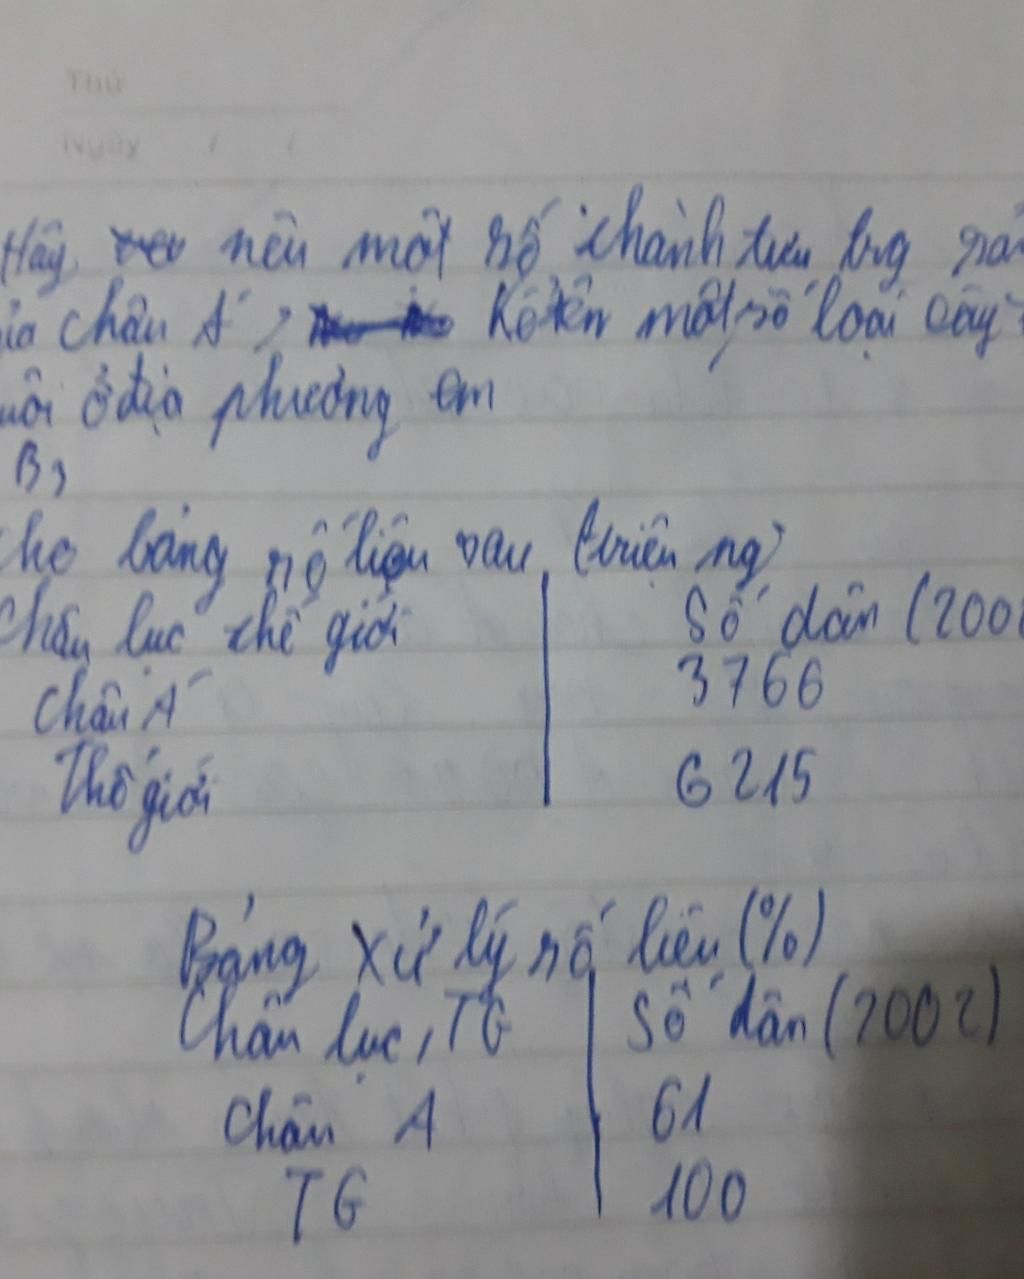 Thứ
Ngày / /
Hãy nêu một số thành tựu trg
châu Á, Kể tên một số loại cây
ở địa phương em
B,
cho bảng số liệu sau (triệu ng)
Châu lục thế giới | Số dân (200
Châu Á | 3766
Thế giới | 6215
Bảng xử lý số liệu (%)
Châu lục, TG | Số dân (2002)
Châu A | 61
TG | 100